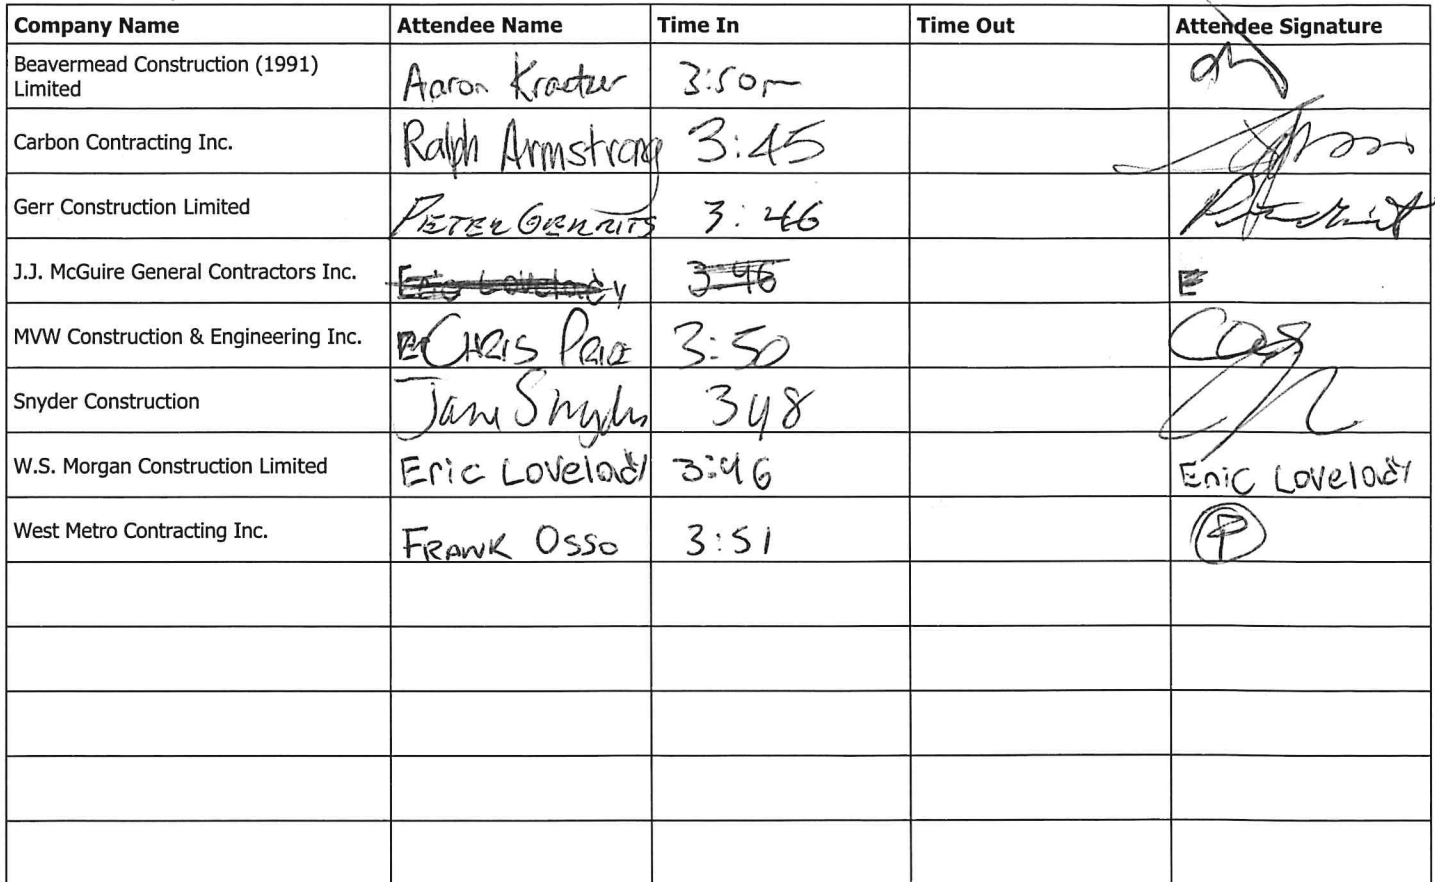 Company Name Attendee Name Time In Time Out Attendee Signature
Beavermead Construction (1991)
Limited Aaron 3:50pm
Carbon Contracting Inc. Ralph Armstrong 3:45
Gerr Construction Limited PETER GERRITS 3:46
J.J. McGuire General Contractors Inc. Eric Lovelady 3 46 E
MVW Construction & Engineering Inc. CHRIS PRICE 3:50
Snyder Construction Snyder 348
W.S. Morgan Construction Limited Eric Lovelady 3:46 Eric Lovelady
West Metro Contracting Inc. FRANK OSSO 3:51